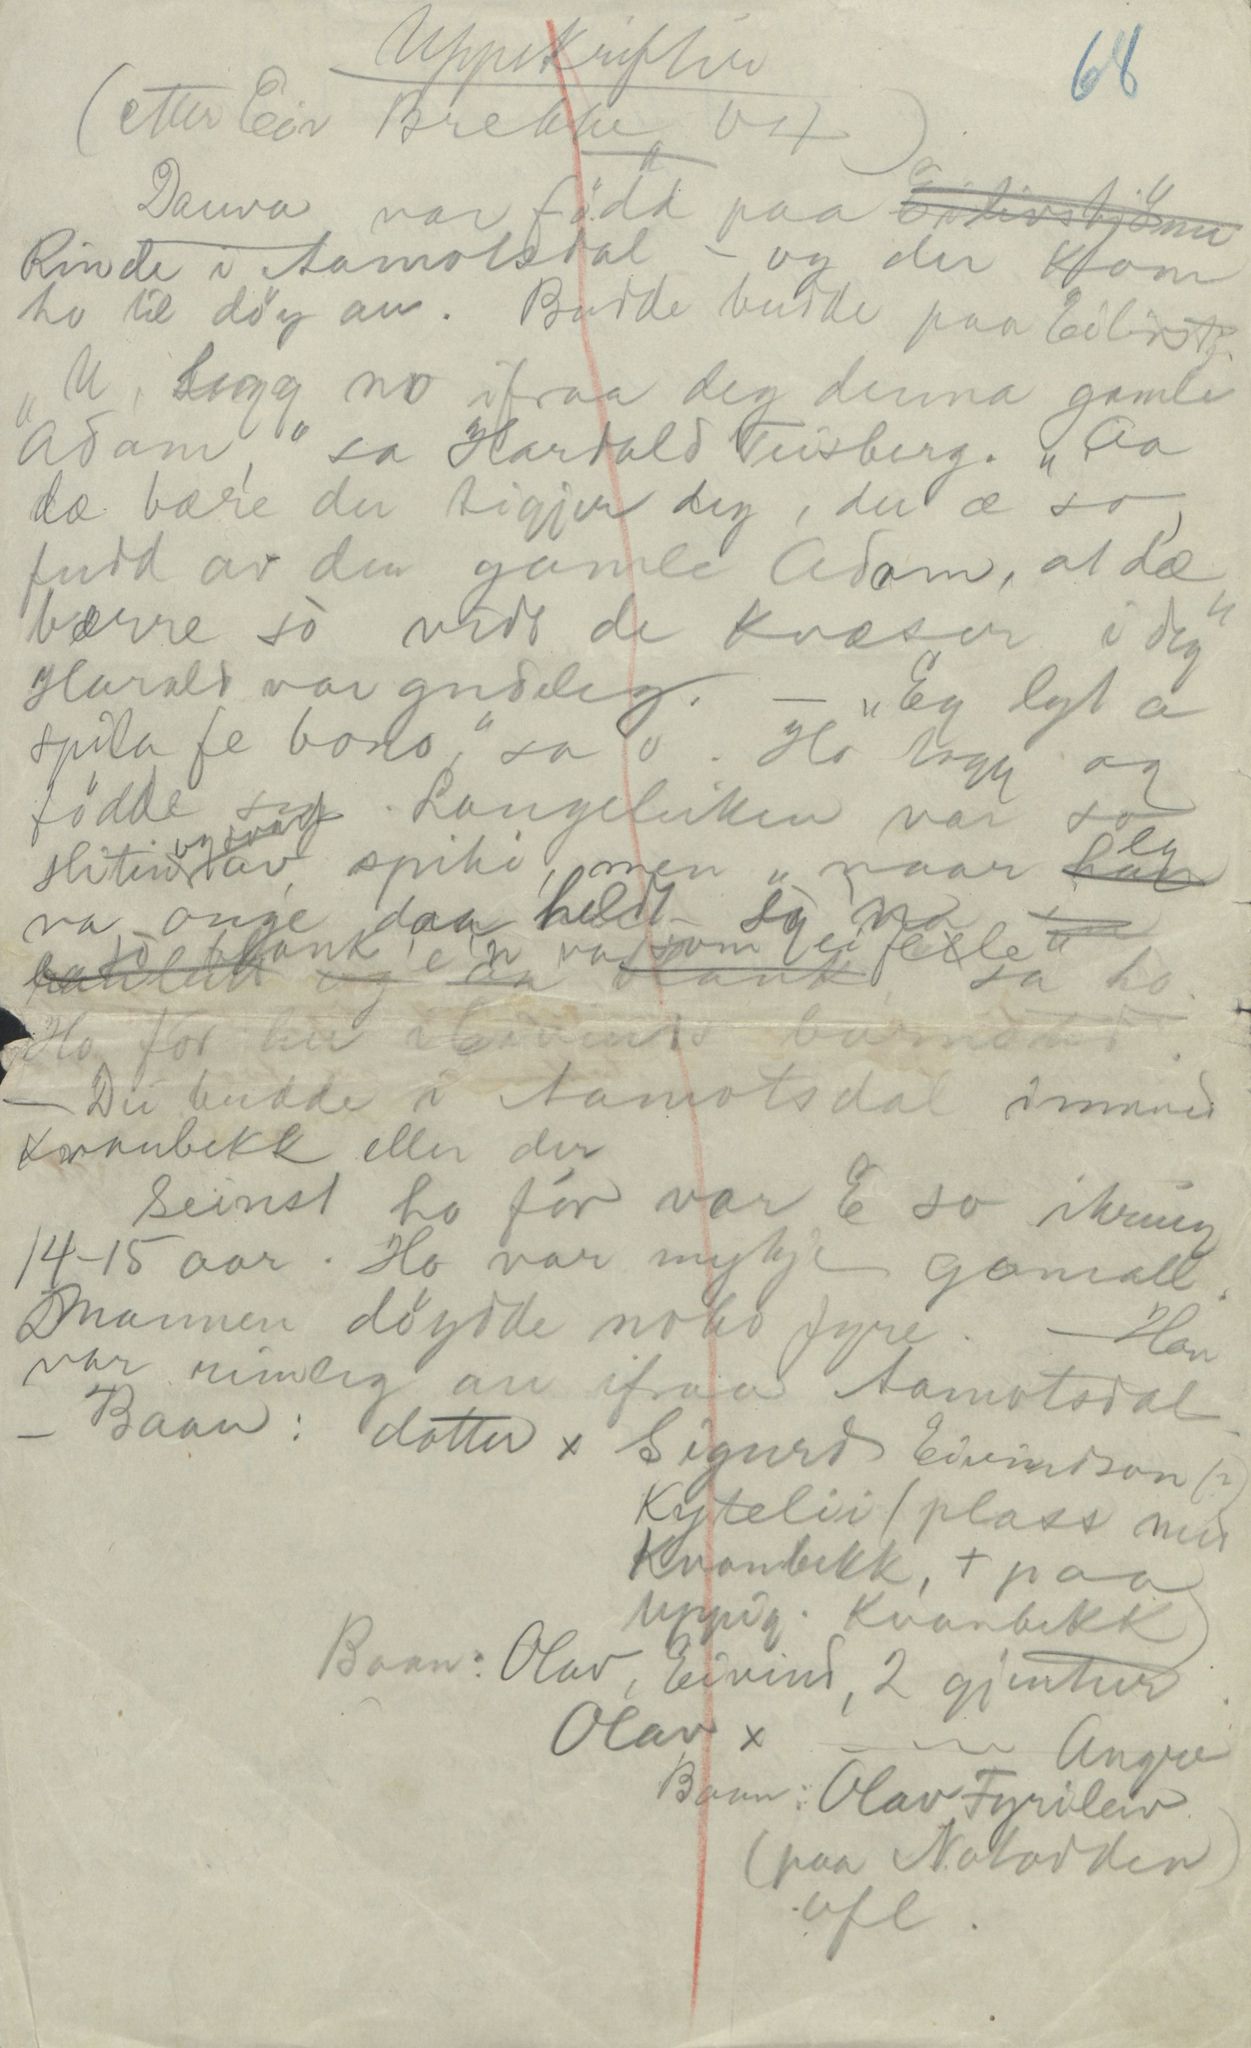 Uppskrifter
68
(etter Eiv Brekke, Vst)
Dauva var född paa Eilivstjönn
Rinde i Aamotsdal - og der kom
ho til döy au. Budde budde paa Eilivstj.
"U, Legg no ifraa deg denna gamle
Adam," sa Harvald Teisberg. "Aa
dæ bære du tigjer deg, du æ so
fudd av den gamle Adam, at dæ
bærre sò vidt de kvæser i deg"
Harald var gudeleg. - "Eg lyt a
spila fe bono," sa o. Ho logg og
födde seg. Langeleiken var so
slitin av spiki, men "naar eg
va onge daa heldt
so blank e'n va som ei fexle" sa ho.
Ho for her i barndad.
- Dei budde i Aamotsdal
Kvanbekk eller der
Seinst ho for var E so ikring
14-15 aar. Ho var mykje gamall.
Mannen döydde noko fyre. - Han
var rimleg au ifraa Aamotsdal
- Baan: dotter x Sigurd Eivindson (?)
Kytelii (plass ned
Kvanbekk, + paa
uppig. Kvanbekk)
Baan: Olav, Eivind, 2 gjentur.
Olav x Angre
Baan: Olav Fyrileiv
(paa Notodden)
ofl.